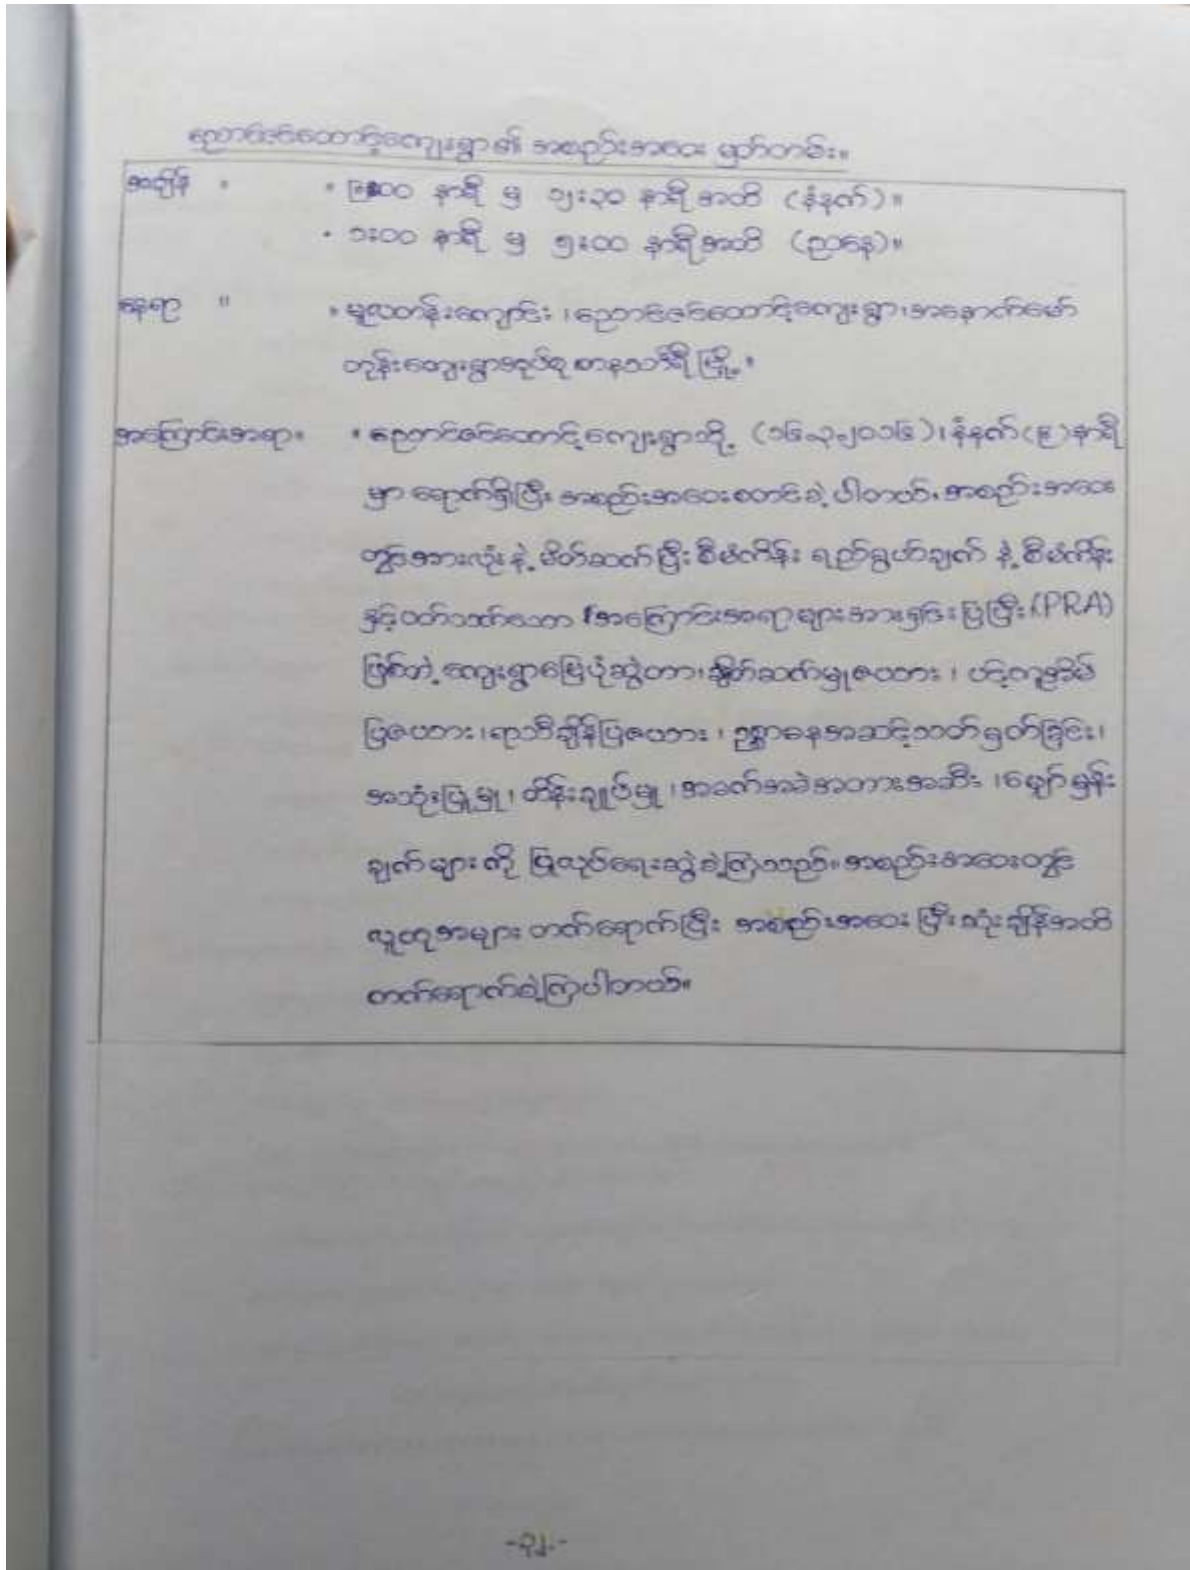 ညောင်ဇင်ထောင့်ကျေးရွာ၏ အစည်းအဝေး မှတ်တမ်း။
အချိန် ။ • နာရီ မှ ၁၂:၃၀ နာရီအထိ (နံနက်)။
• ၁:၀၀ နာရီ မှ ၅:၀၀ နာရီအထိ (ညနေ)။
နေရာ ။ • မူလတန်းကျောင်း ၊ ညောင်ဇင်ထောင့်ကျေးရွာ၊ အနောက်မော်
တုန်းကျေးရွာအုပ်စု တနင်္သာရီမြို့။
အကြောင်းအရာ။ • ညောင်ဇင်ထောင့်ကျေးရွာသို့ (၁၆-၃-၂၀၁၆)၊ နံနက်(၉)နာရီ
မှာ ရောက်ရှိပြီး အစည်းအဝေးစတင်ခဲ့ပါတယ်၊ အစည်းအဝေး
တွင်အားလုံးနဲ့ မိတ်ဆက်ပြီး စီမံကိန်း ရည်ရွယ်ချက် နဲ့ စီမံကိန်း
နှင့်ပတ်သတ်သော အကြောင်းအရာများအားရှင်းပြပြီး (PRA)
ဖြစ်တဲ့ ကျေးရွာမြေပုံဆွဲတာ၊ ချိတ်ဆက်မှုဇယား ၊
ပြဇယား ၊ ရာသီချိန်ပြဇယား ၊ ဥစ္စာဓနအဆင့်သတ်မှတ်ခြင်း၊
အသုံးပြုမှု ၊ ထိန်းချုပ်မှု ၊ အခက်အခဲအတားအဆီး ၊ မျှော်မှန်း
ချက်များကို ပြုလုပ်ရေးဆွဲခဲ့ကြသည်။ အစည်းအဝေးတွင်
လူထုအများ တက်ရောက်ပြီး အစည်းအဝေး ပြီးဆုံးချိန်အထိ
တက်ရောက်ခဲ့ကြပါတယ်။
-၃၂-